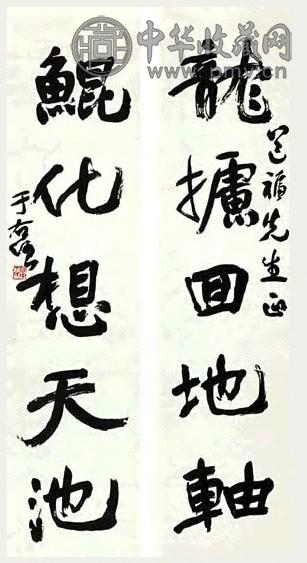 中华收藏网
龍攄回地軸
福先生正
鯤化想天池
于右任